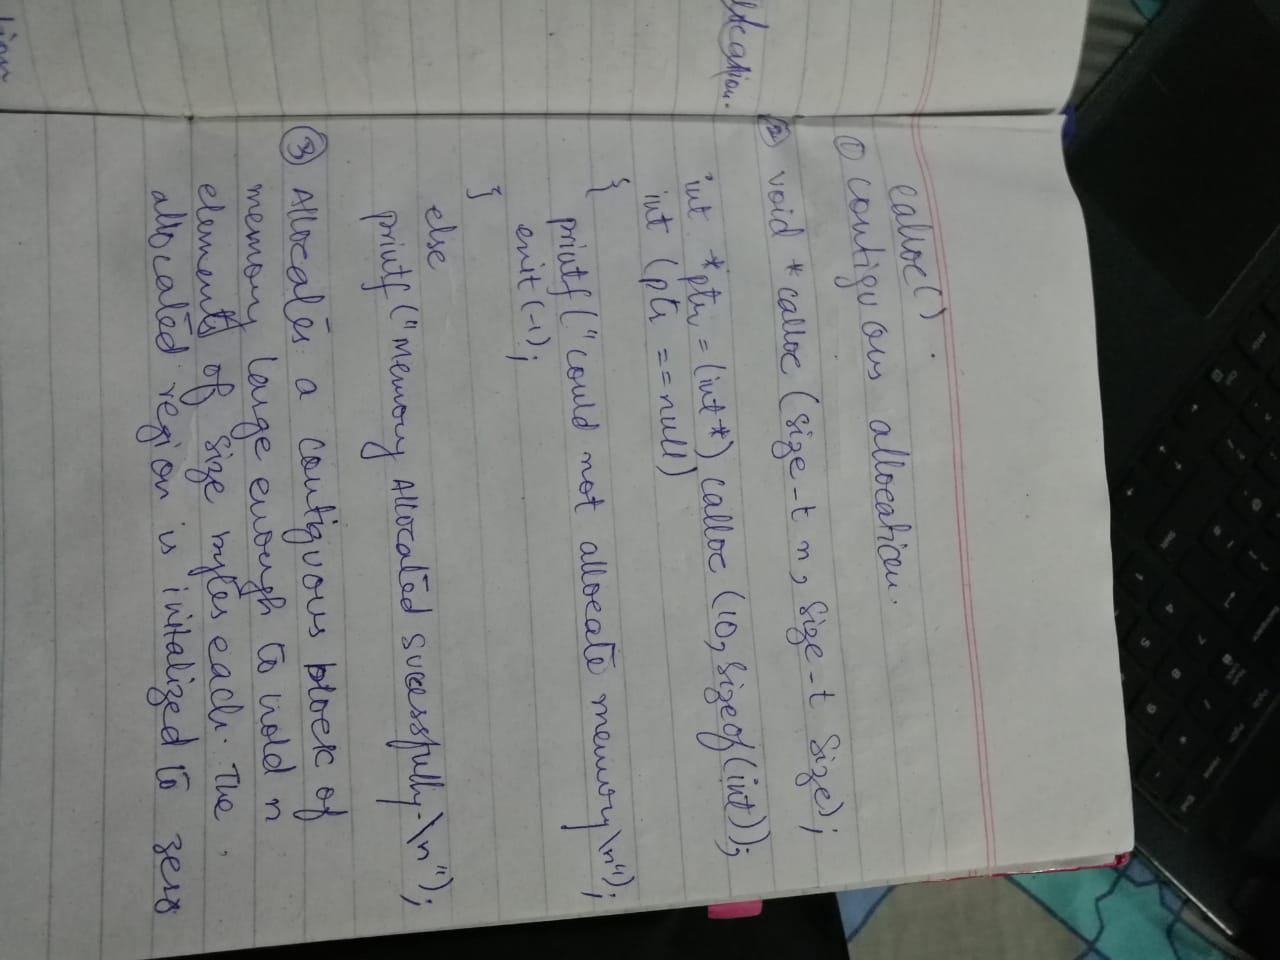 calloc()
① contiguous allocation.
② void *calloc (size-t n, size-t size);
int *ptr = (int*) calloc (10, sizeof(int));
int (ptr == null)
{
printf ("could not allocate memory\n");
exit (-1);
}
else
printf ("Memory Allocated successfully.\n");
③ Allocates a contiguous block of
memory large enough to hold n
elements of size bytes each. The
allocated region is initalized to zero